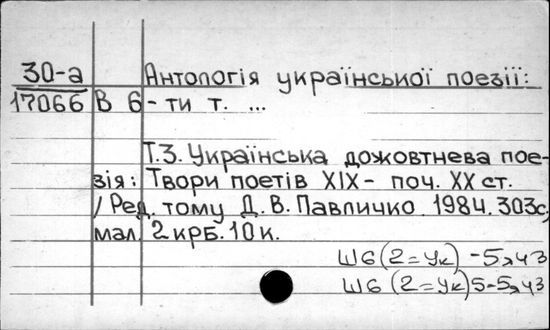 30-а Антологія української поезії:
17066 В 6-ти т. ...
Т.3. Українська дожовтнева пое-
зія: Твори поетів XIX - поч. XX ст.
/ Ред. тому Д. В. Павличко. 1984. 303с,
мал. 2 крб. 10 к.
Ш6(2=Ук) -5я43
Ш6(2=Ук)5-5я43